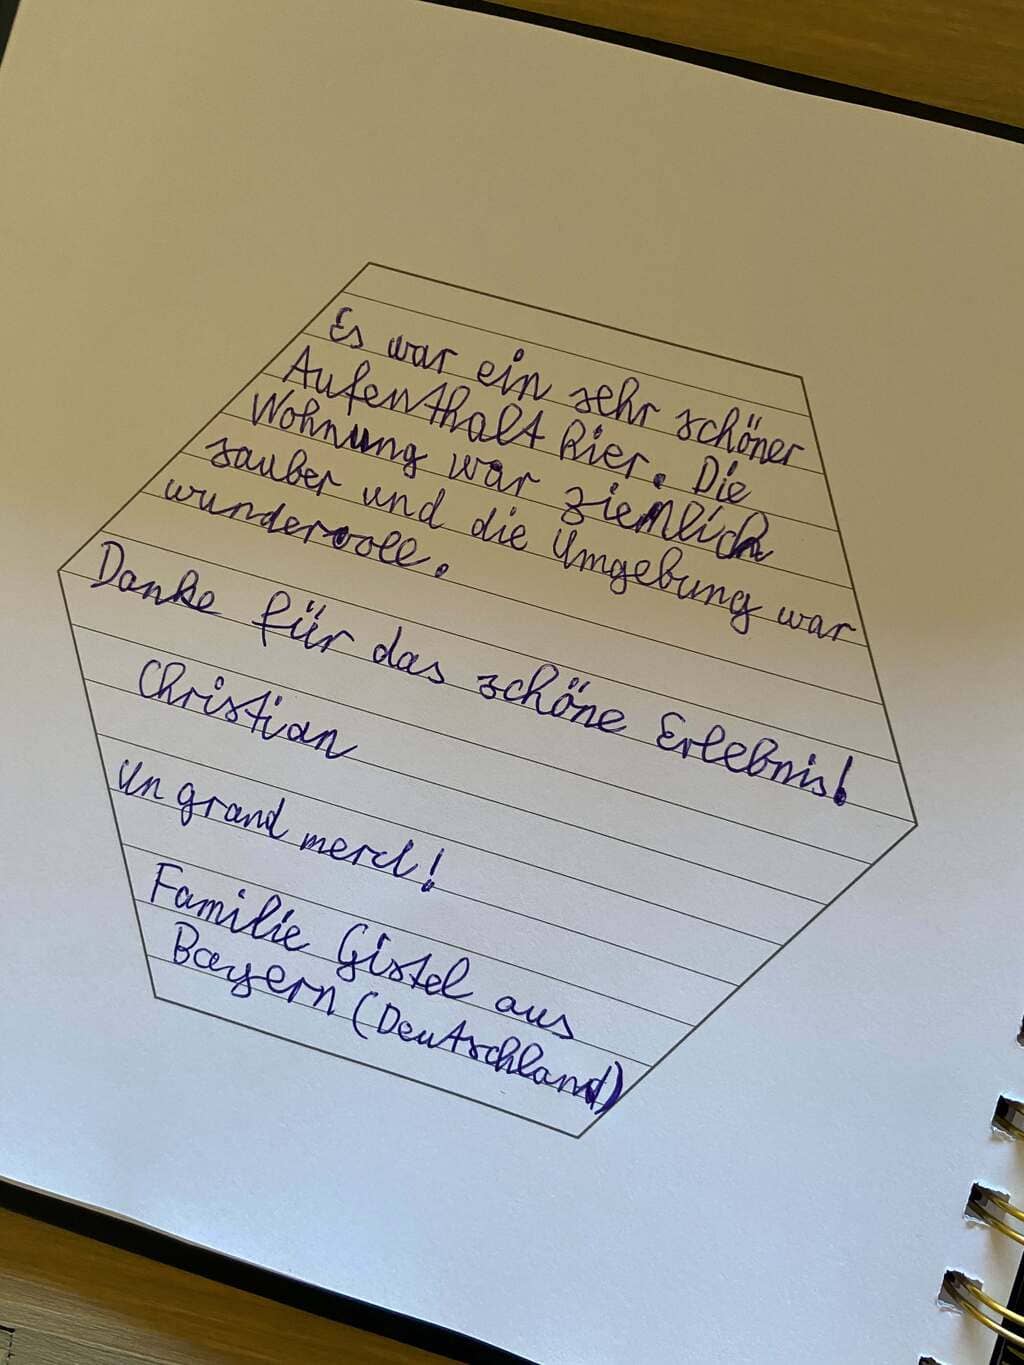 Es war ein sehr schöner
Aufenthalt hier. Die
Wohnung war ziemlich
sauber und die Umgebung war
wundervoll.
Danke für das schöne Erlebnis!
Christian
un grand merci!
Familie Gistel aus
Bayern (Deutschland)